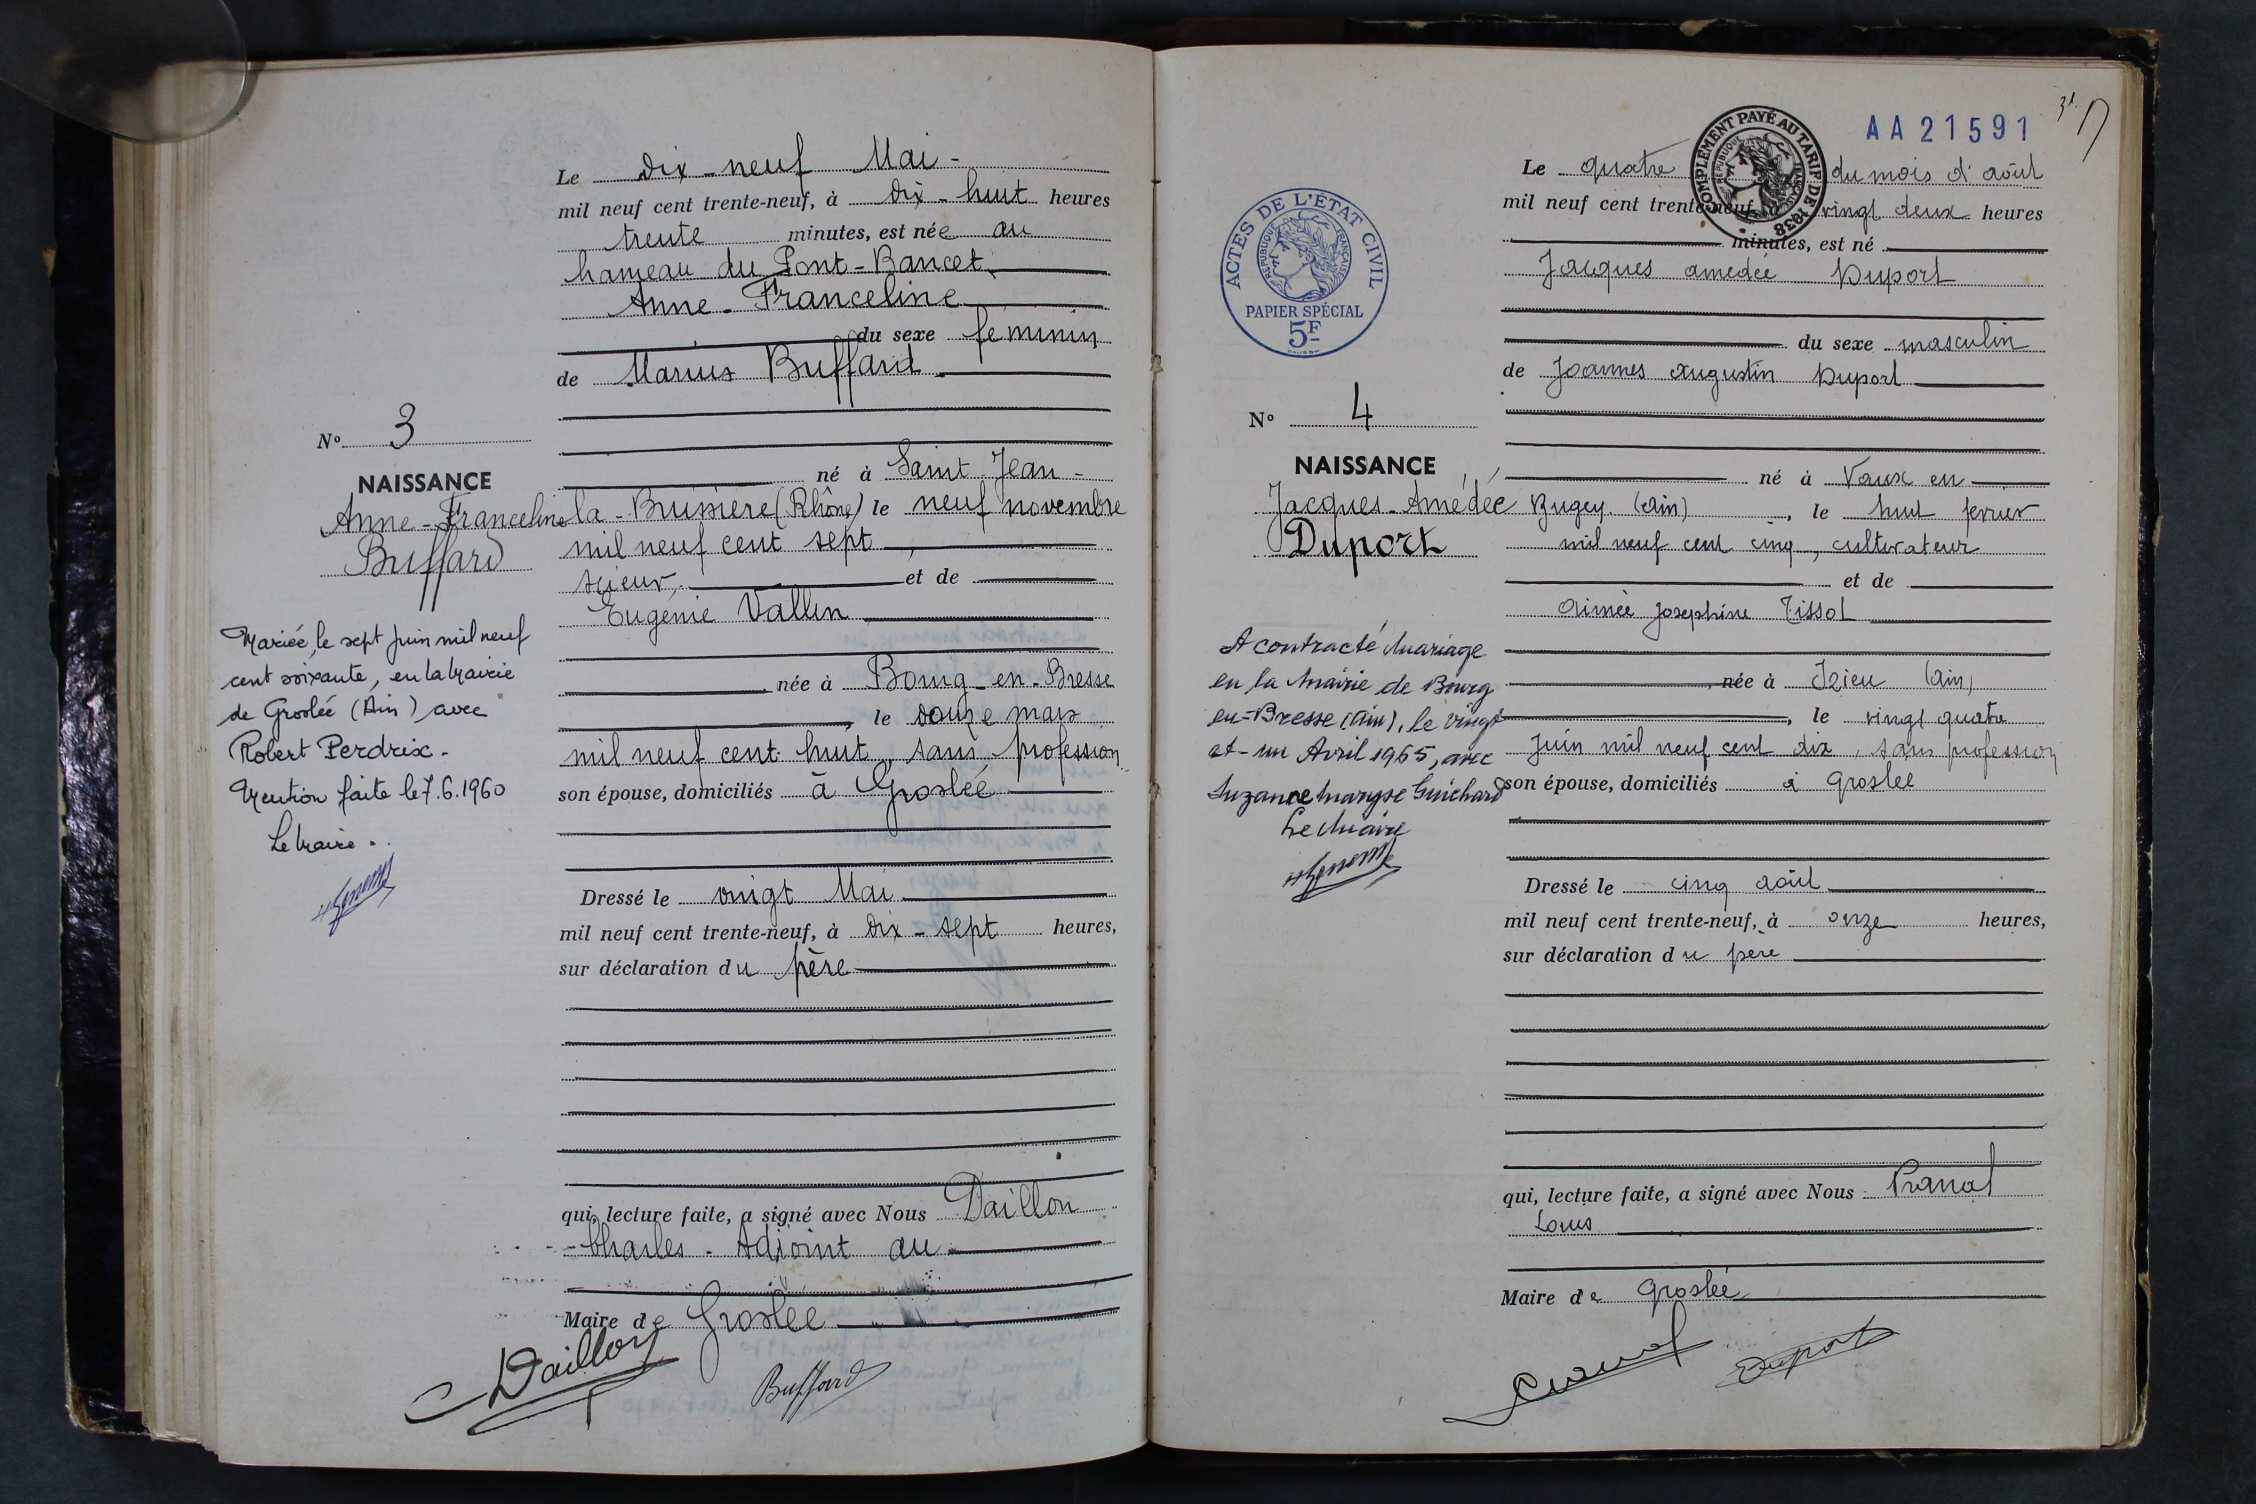 Le dix-neuf Mai -
mil neuf cent trente-neuf, à dix-huit heures
trente minutes, est née au
hameau du Pont-Bancet,
Anne-Franceline
du sexe féminin
de Marius Buffard
N° 3
NAISSANCE
Anne-Franceline
Buffard
né à Saint-Jean-
la-Bussière (Rhône) le neuf novembre
mil neuf cent sept,
scieur, et de
Eugénie Vallin
née à Bourg-en-Bresse
, le douze mars
mil neuf cent huit, sans profession
son épouse, domiciliés à Groslée
Mariée le sept Juin mil neuf
cent soixante, en la Mairie
de Groslée (Ain) avec
Robert Perdrix.
Mention faite le 7.6.1960
Le Maire.
Dressé le vingt Mai
mil neuf cent trente-neuf, à dix-sept heures,
sur déclaration du père
qui, lecture faite, a signé avec Nous Daillon
Charles - Adjoint au
Maire de Groslée
Daillon
Buffard
31
AA21591
COMPLÉMENT PAYÉ AU TARIF DE 1938
RÉPUBLIQUE FRANÇAISE
ACTES DE L'ÉTAT CIVIL
RÉPUBLIQUE FRANÇAISE
PAPIER SPÉCIAL
5F
Le quatre du mois d'août
mil neuf cent trente-neuf, à vingt deux heures
minutes, est né
Jacques amedée Duport
du sexe masculin
de Joannes Augustin Duport
N° 4
NAISSANCE
Jacques-Amédée
Duport
né à Vaux en
Bugey (Ain), le huit fevrier
mil neuf cent cinq, cultivateur
et de
Aimée Josephine Tissot
, née à Izieu (Ain)
, le vingt quatre
Juin mil neuf cent dix, sans profession
son épouse, domiciliés à Groslée
A contracté Mariage
en la Mairie de Bourg
en=Bresse (Ain), le vingt
et-un Avril 1965, avec
Suzanne Maryse Guichard
Le Maire
Dressé le cinq août
mil neuf cent trente-neuf, à onze heures,
sur déclaration du père
qui, lecture faite, a signé avec Nous
Louis
Maire de Groslée
Duport